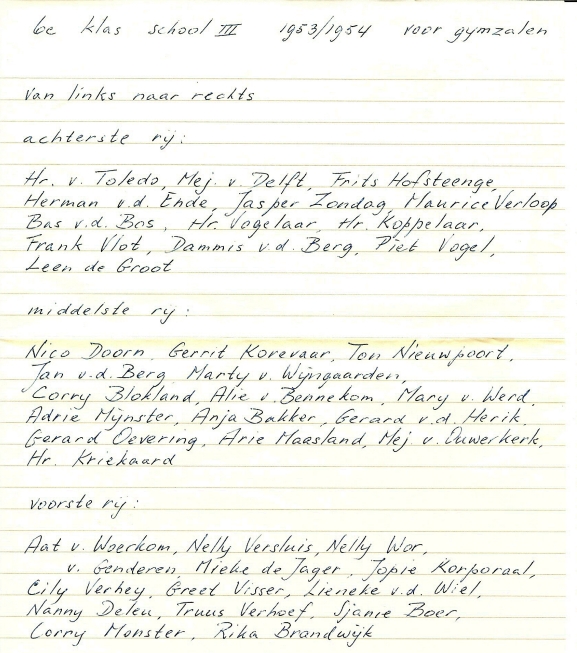 6e klas school III 1953/1954 voor gymzalen
van links naar rechts
achterste rij:
Hr. v. Toledo, Mej. v. Delft, Frits Hofsteenge,
Herman v.d. Ende, Jasper Zondag, Maurice Verloop
Bas v.d. Bos, Hr. Vogelaar, Hr. Koppelaar,
Frank Vlot, Dammis v.d. Berg, Piet Vogel,
Leen de Groot
middelste rij:
Nico Doorn, Gerrit Korevaar, Ton Nieuwpoort,
Jan v.d. Berg, Marty v. Wijngaarden,
Corry Blokland, Alie v. Bennekom, Mary v. Werd,
Adrie Mijnster, Anja Bakker, Gerard v.d. Herik,
Gerard Oevering, Arie Maasland, Mej v. Ouwerkerk,
Hr. Kriekaard
voorste rij:
Aat v. Woerkom, Nelly Versluis, Nelly Wor,
v. Genderen, Mieke de Jager, Jopie Korporaal,
Cily Verhey, Greet Visser, Lieneke v.d. Wiel,
Nanny Deleu, Truus Verhoef, Sjanie Boer,
Corry Monster, Rika Brandwijk